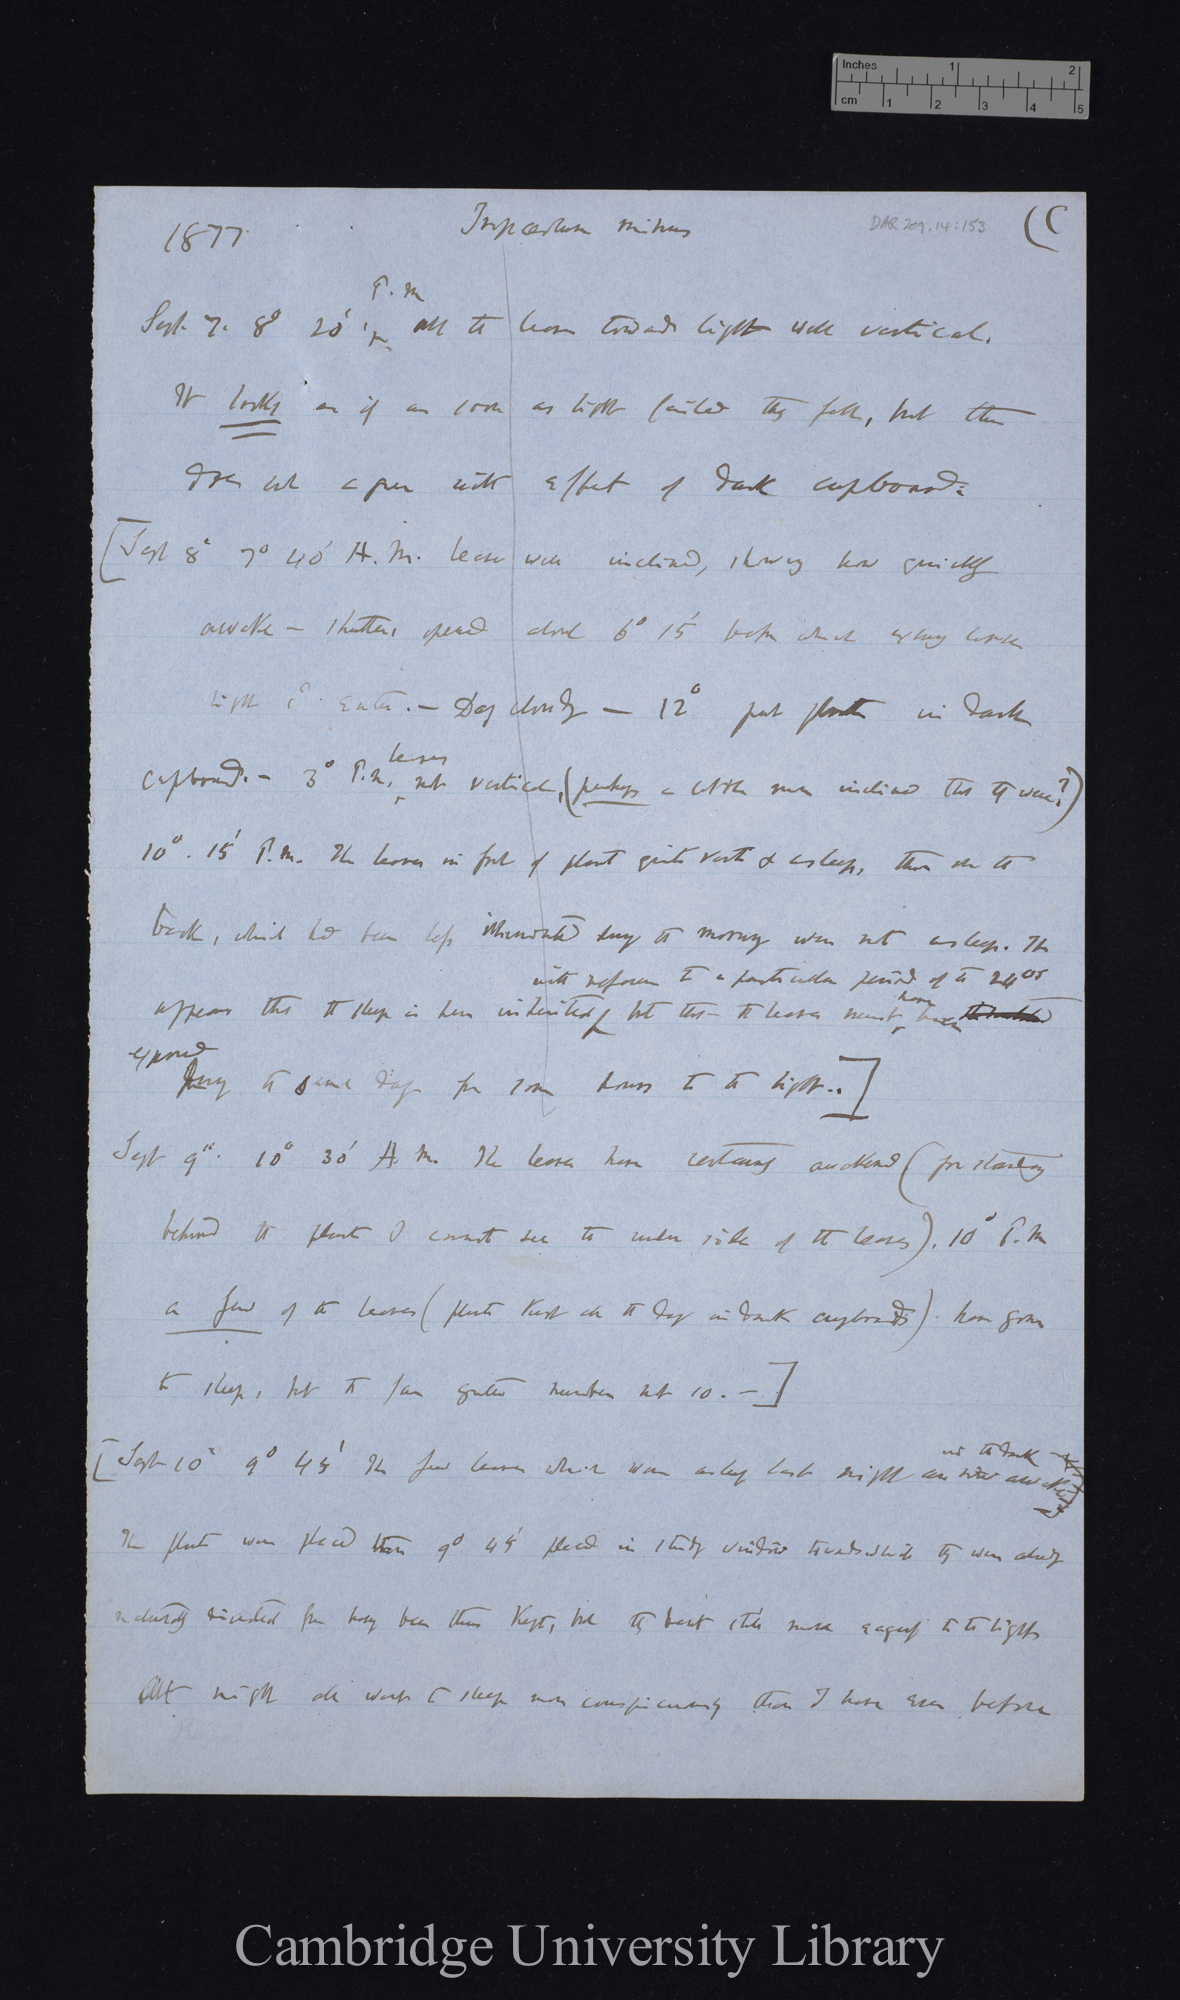 Inches 1 2
cm 1 2 3 4 5
1877 Tropæolum minus DAR 209.14:153 (C
P.m
Sept. 7. 8° 20' all the leaves towards light well vertical.
It looks as if as soon as light failed they fell, but this
does not agree with effect of dark cupboard:
[Sept 8° 7° 40' A.M. leaves well inclined, showing how quickly
awake — shutters opened about 6° 15' before which
light enter. — Day cloudy — 12° put plants in dark
leaves
cupboard. — 3° P.m. not vertical, (perhaps a little more inclined than they were?)
10°. 15' P.m. The leaves in front of plant quite vert & asleep, those on the
back, which had been less illuminated during the morning were not asleep. This
with reference to a particular period of the 24°
appears that the sleep is here inherited, but that the leaves must have been
exposed
during the same day for some hours to the light..]
Sept 9th. 10° 30' A.M. The leaves have certainly awakened (for standing
behind the plants I cannot see the under side of the leaves). 10° P.M
a few of the leaves (plants kept all the day in dark cupboards) have gone
to sleep, but the far greater number not so. —]
in the dark
[Sept 10° 9° 45' The few leaves which were asleep last night are now awake
The plants were placed 9° 45' placed in study window towards which they were already
from having been thus kept, but they bent still more to the light
At night all went to sleep more conspicuously than I have seen before
Cambridge University Library